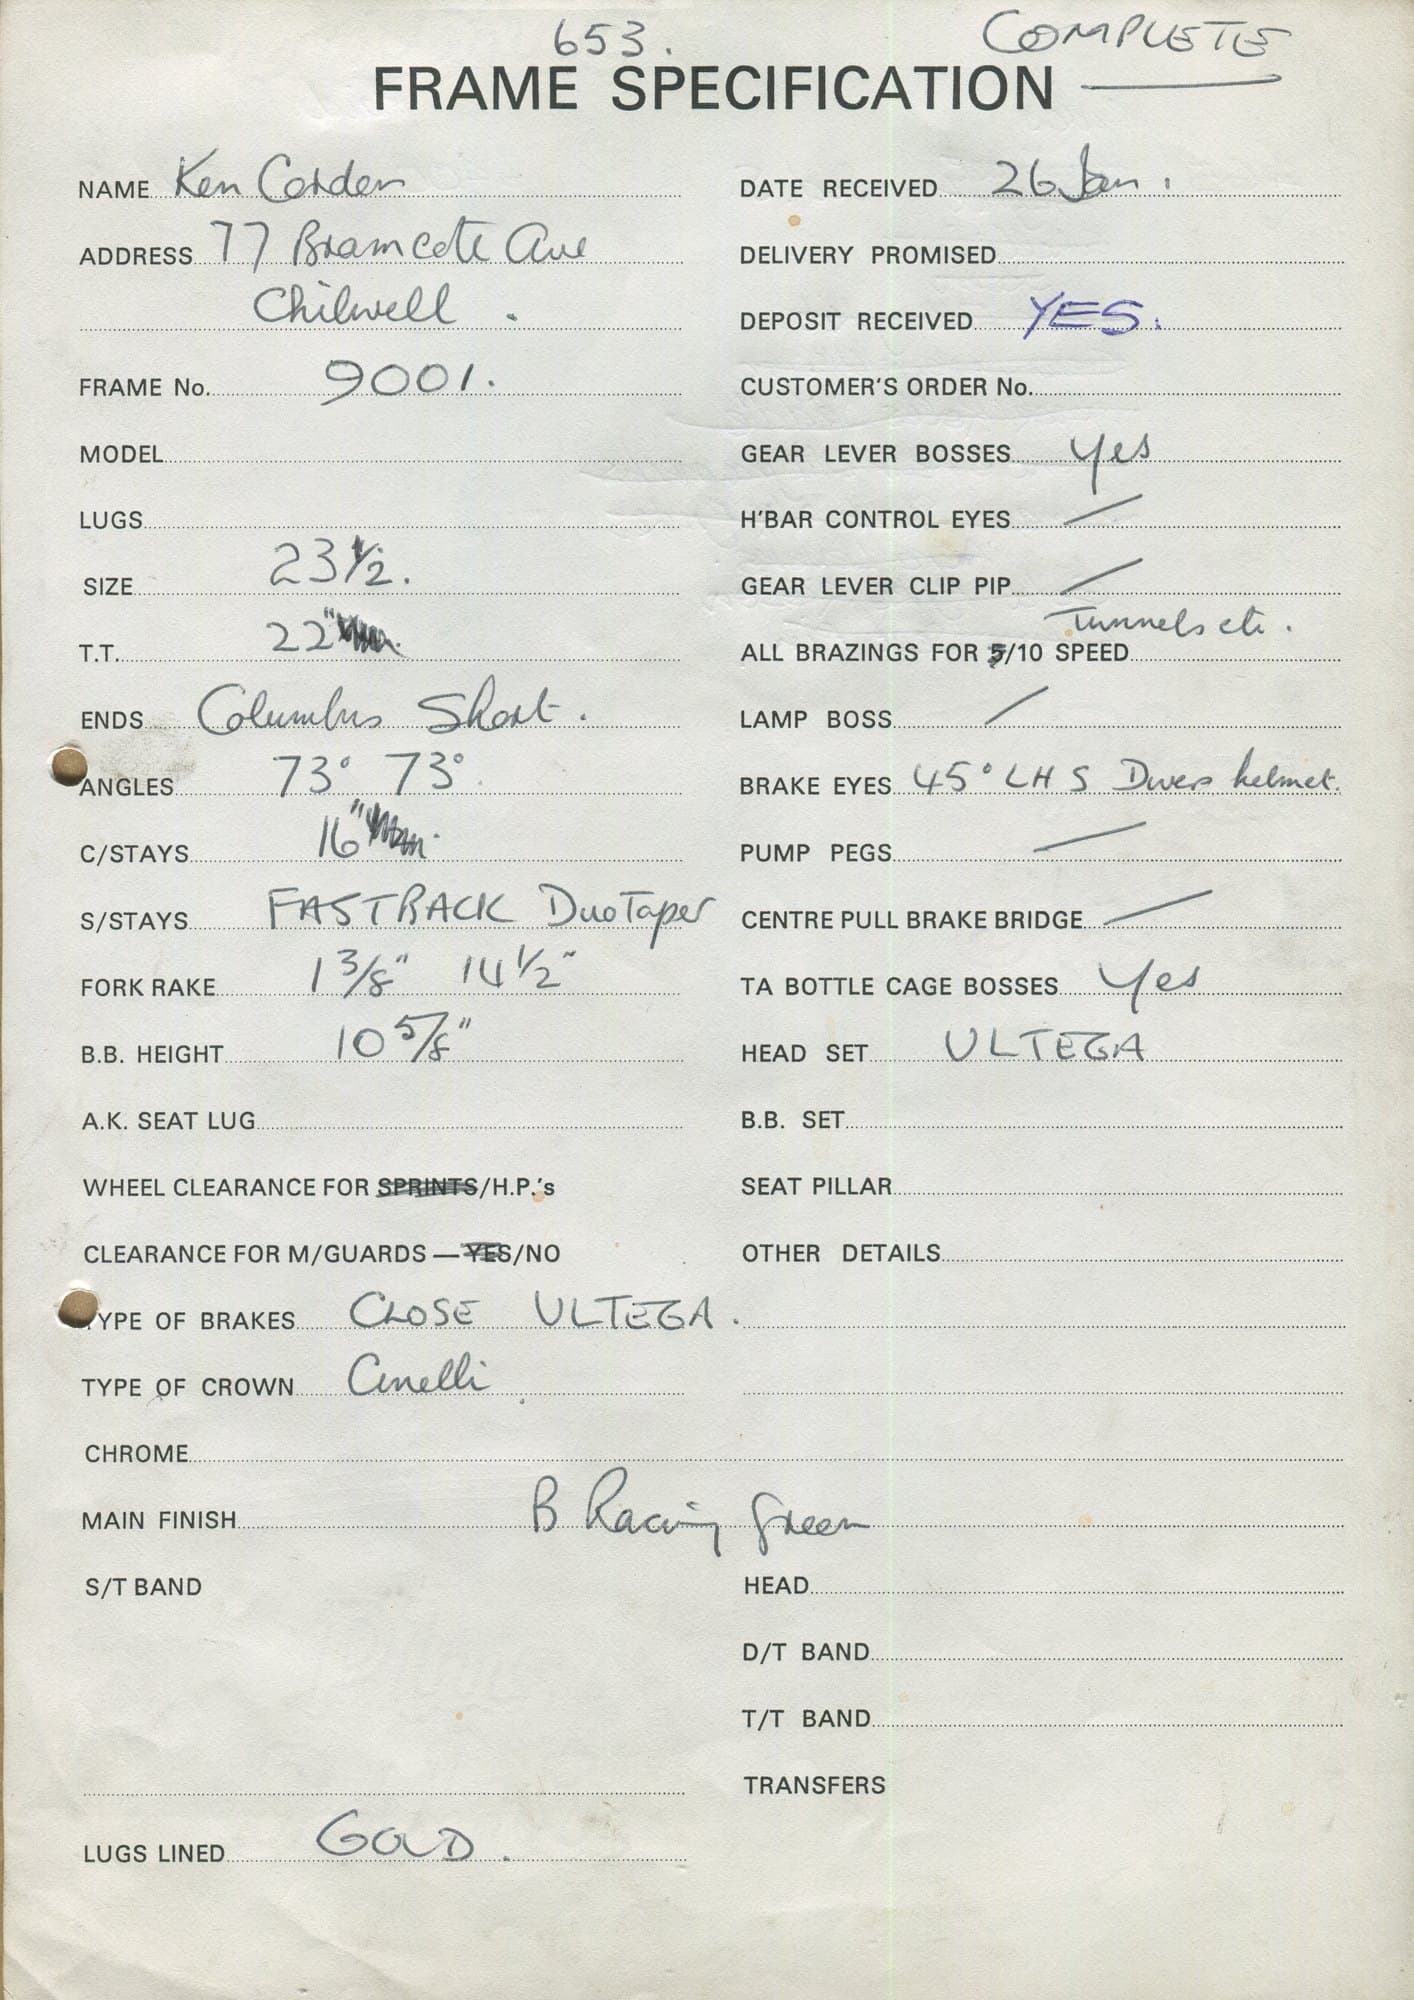 653. COMPLETE
FRAME SPECIFICATION
NAME Ken Corden
ADDRESS 77 Bramcote Ave
Chilwell.
FRAME No. 9001.
MODEL
LUGS
SIZE 23 1/2.
T.T. 22"
ENDS Columbus Short.
ANGLES 73° 73°
C/STAYS 16"
S/STAYS FASTRACK DuoTaper
FORK RAKE 1 3/8" 14 1/2"
B.B. HEIGHT 10 5/8"
A.K. SEAT LUG
WHEEL CLEARANCE FOR SPRINTS/H.P.'s
CLEARANCE FOR M/GUARDS — YES/NO
TYPE OF BRAKES CLOSE ULTEGA.
TYPE OF CROWN Cinelli
CHROME
MAIN FINISH B Racing Green
S/T BAND
LUGS LINED GOLD.
DATE RECEIVED 26 Jan.
DELIVERY PROMISED
DEPOSIT RECEIVED YES.
CUSTOMER'S ORDER No.
GEAR LEVER BOSSES Yes
H'BAR CONTROL EYES /
GEAR LEVER CLIP PIP /
Tunnels etc.
ALL BRAZINGS FOR 5/10 SPEED
LAMP BOSS /
BRAKE EYES 45° LHS Divers helmet.
PUMP PEGS /
CENTRE PULL BRAKE BRIDGE /
TA BOTTLE CAGE BOSSES Yes
HEAD SET ULTEGA
B.B. SET
SEAT PILLAR
OTHER DETAILS
HEAD
D/T BAND
T/T BAND
TRANSFERS